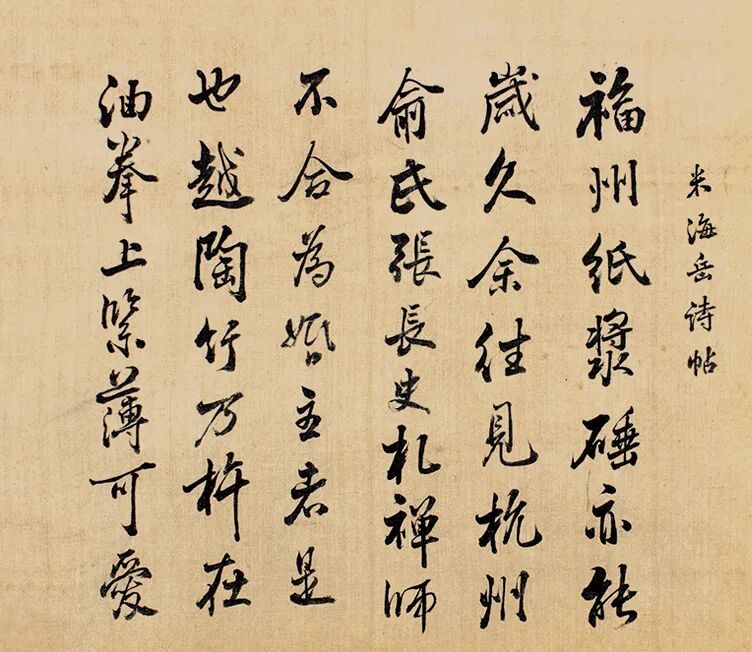 米海岳诗帖
福州紙漿硾亦能
歲久余往見杭州
俞氏張長史札禅師
不合為婚主者是
也越陶竹乃杵在
油拳上緊薄可愛